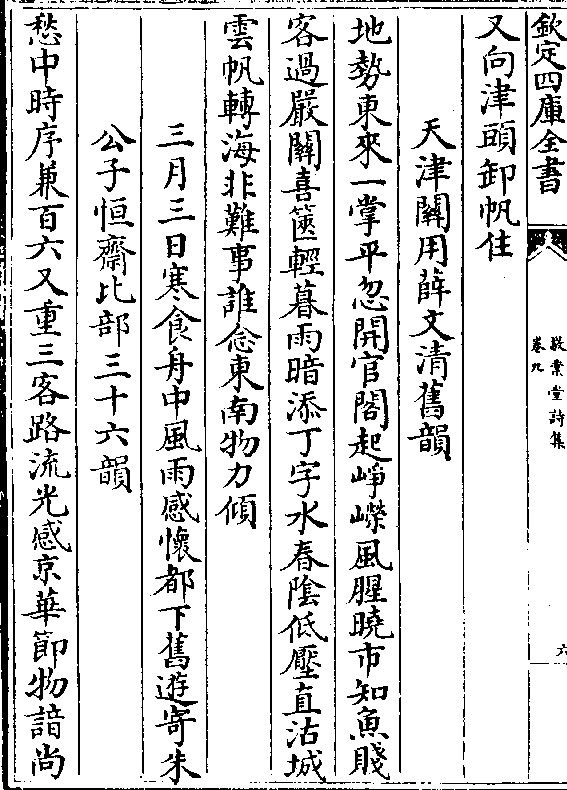 欽定四庫全書
敬業堂詩集
卷九
六
又向津頭卸帆住
天津關用薛文清舊韻
地勢東來一掌平忽開官閣起崢嶸風腥曉市知魚賤
客過嚴關喜篋輕暮雨暗添丁字水春陰低壓直沽城
雲帆轉海非難事誰念東南物力傾
三月三日寒食舟中風雨感懷都下舊遊寄朱
公子恒齋比部三十六韻
愁中時序兼百六又重三客路流光感京華節物諳尚